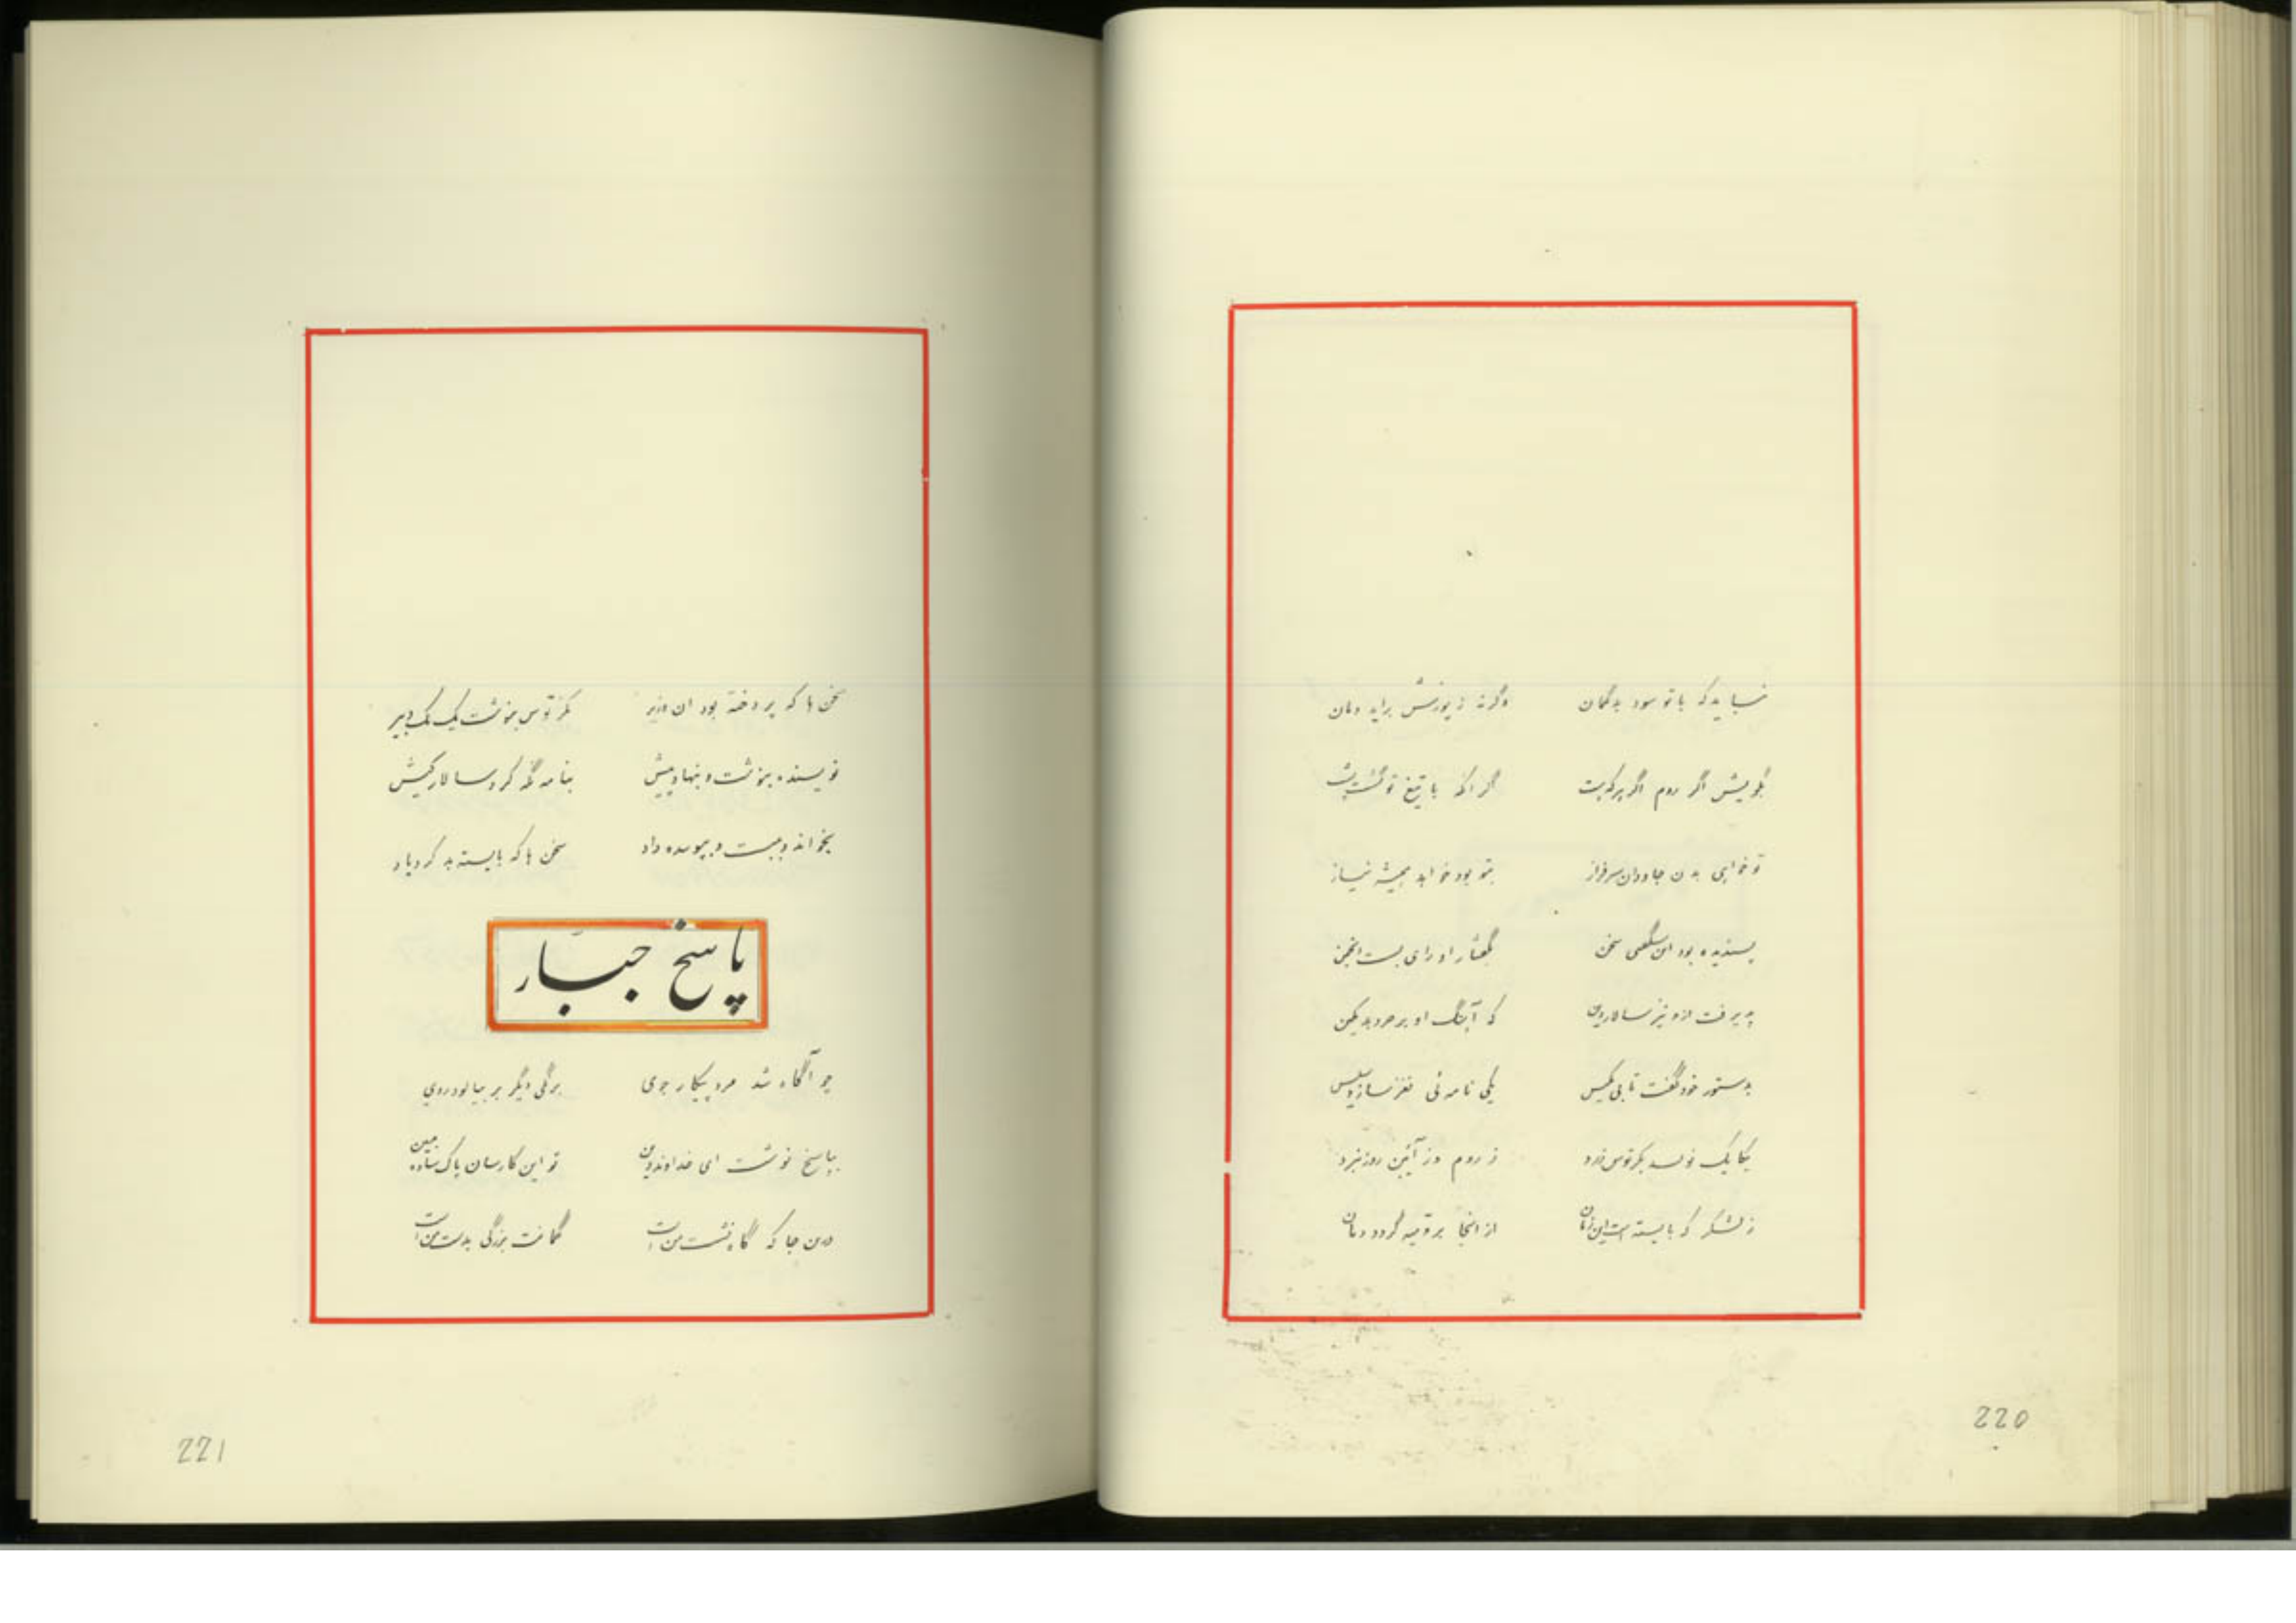 نسباید که با تو سود بدگمان وگرنه ز پوزش براید دمان
بگویش اگر روم اگر بربریت گر آنکه با تیغ تو گشت پست
تو خواهی بدن جاودان سرفراز بتو بود خواهد همیشه نیاز
پسندیده بود این سخن بگفتار او رای بست انجمن
پذیرفت ازو نیز سالار دین که آهنگ او بر
بدستور خود گفت تا بی مکیس یکی نامه نغز سازد سلیس
یکایک نویسد ز روم وز آئین روز نبرد
ز لشکر که بایسته است این زمان از اینجا برقیه گردد دمان
220
سخن ها که پردخته بود آن وزیر بنوشت یک یک دبیر
نویسنده بنوشت و بنهاد پیش بنامه نگه کرد سالار کیش
بخواند و ببست و ببوسید و داد سخن ها که بایسته بد کرد یاد
پاسخ جبّار
چو آگاه شد مرد پیکار جوی برنگی دیگر بر بیالود روی
بپاسخ نوشت ای خداوند دین تو این کارسان پاک ساده مبین
درین جا که گاه نشست من است گمانت بزرگی بدست من است
221